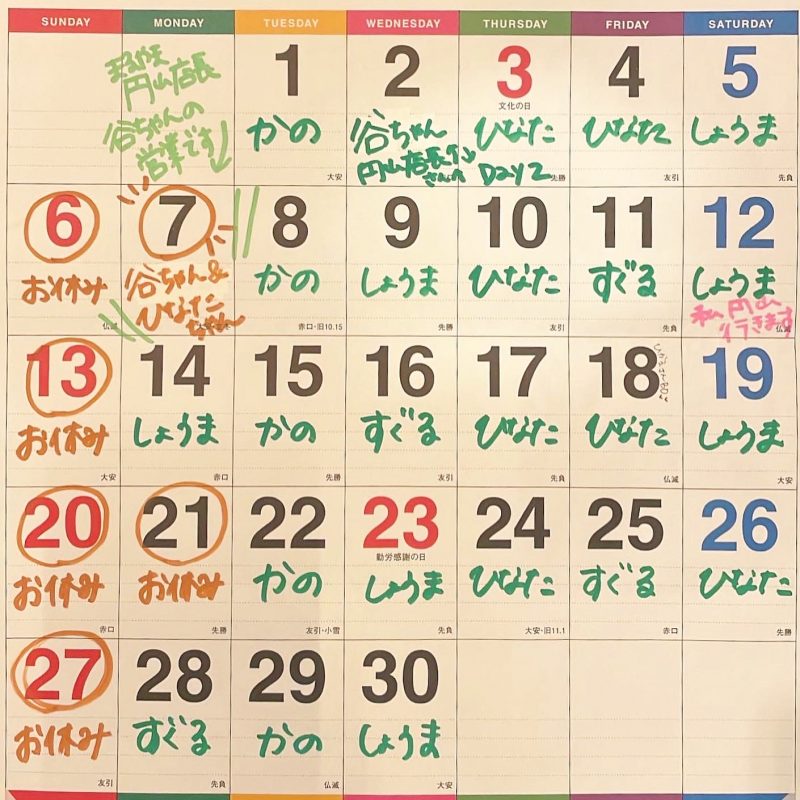 SUNDAY MONDAY TUESDAY WEDNESDAY THURSDAY FRIDAY SATURDAY
円山店長
谷ちゃんの
営業です
1 2 3 4 5
文化の日
かの 谷ちゃん ひなた ひなた しょうま
円山店長 さんの Day2
大安 先勝 友引 先負
6 7 8 9 10 11 12
お休み 谷ちゃん& かの しょうま ひなた すぐる しょうま
ひなた
ちゃん
私 円山
行きます
仏滅 赤口・旧10.15 先勝 友引 先負 仏滅
13 14 15 16 17 18 19
お休み しょうま かの すぐる ひなた ひなた しょうま
大安 赤口 先勝 友引 先負 仏滅 大安
20 21 22 23 24 25 26
勤労感謝の日
お休み お休み かの しょうま ひなた すぐる ひなた
赤口 先勝 友引・小雪 先負 大安・旧11.1 赤口 先勝
27 28 29 30
お休み すぐる かの しょうま
友引 先負 仏滅 大安